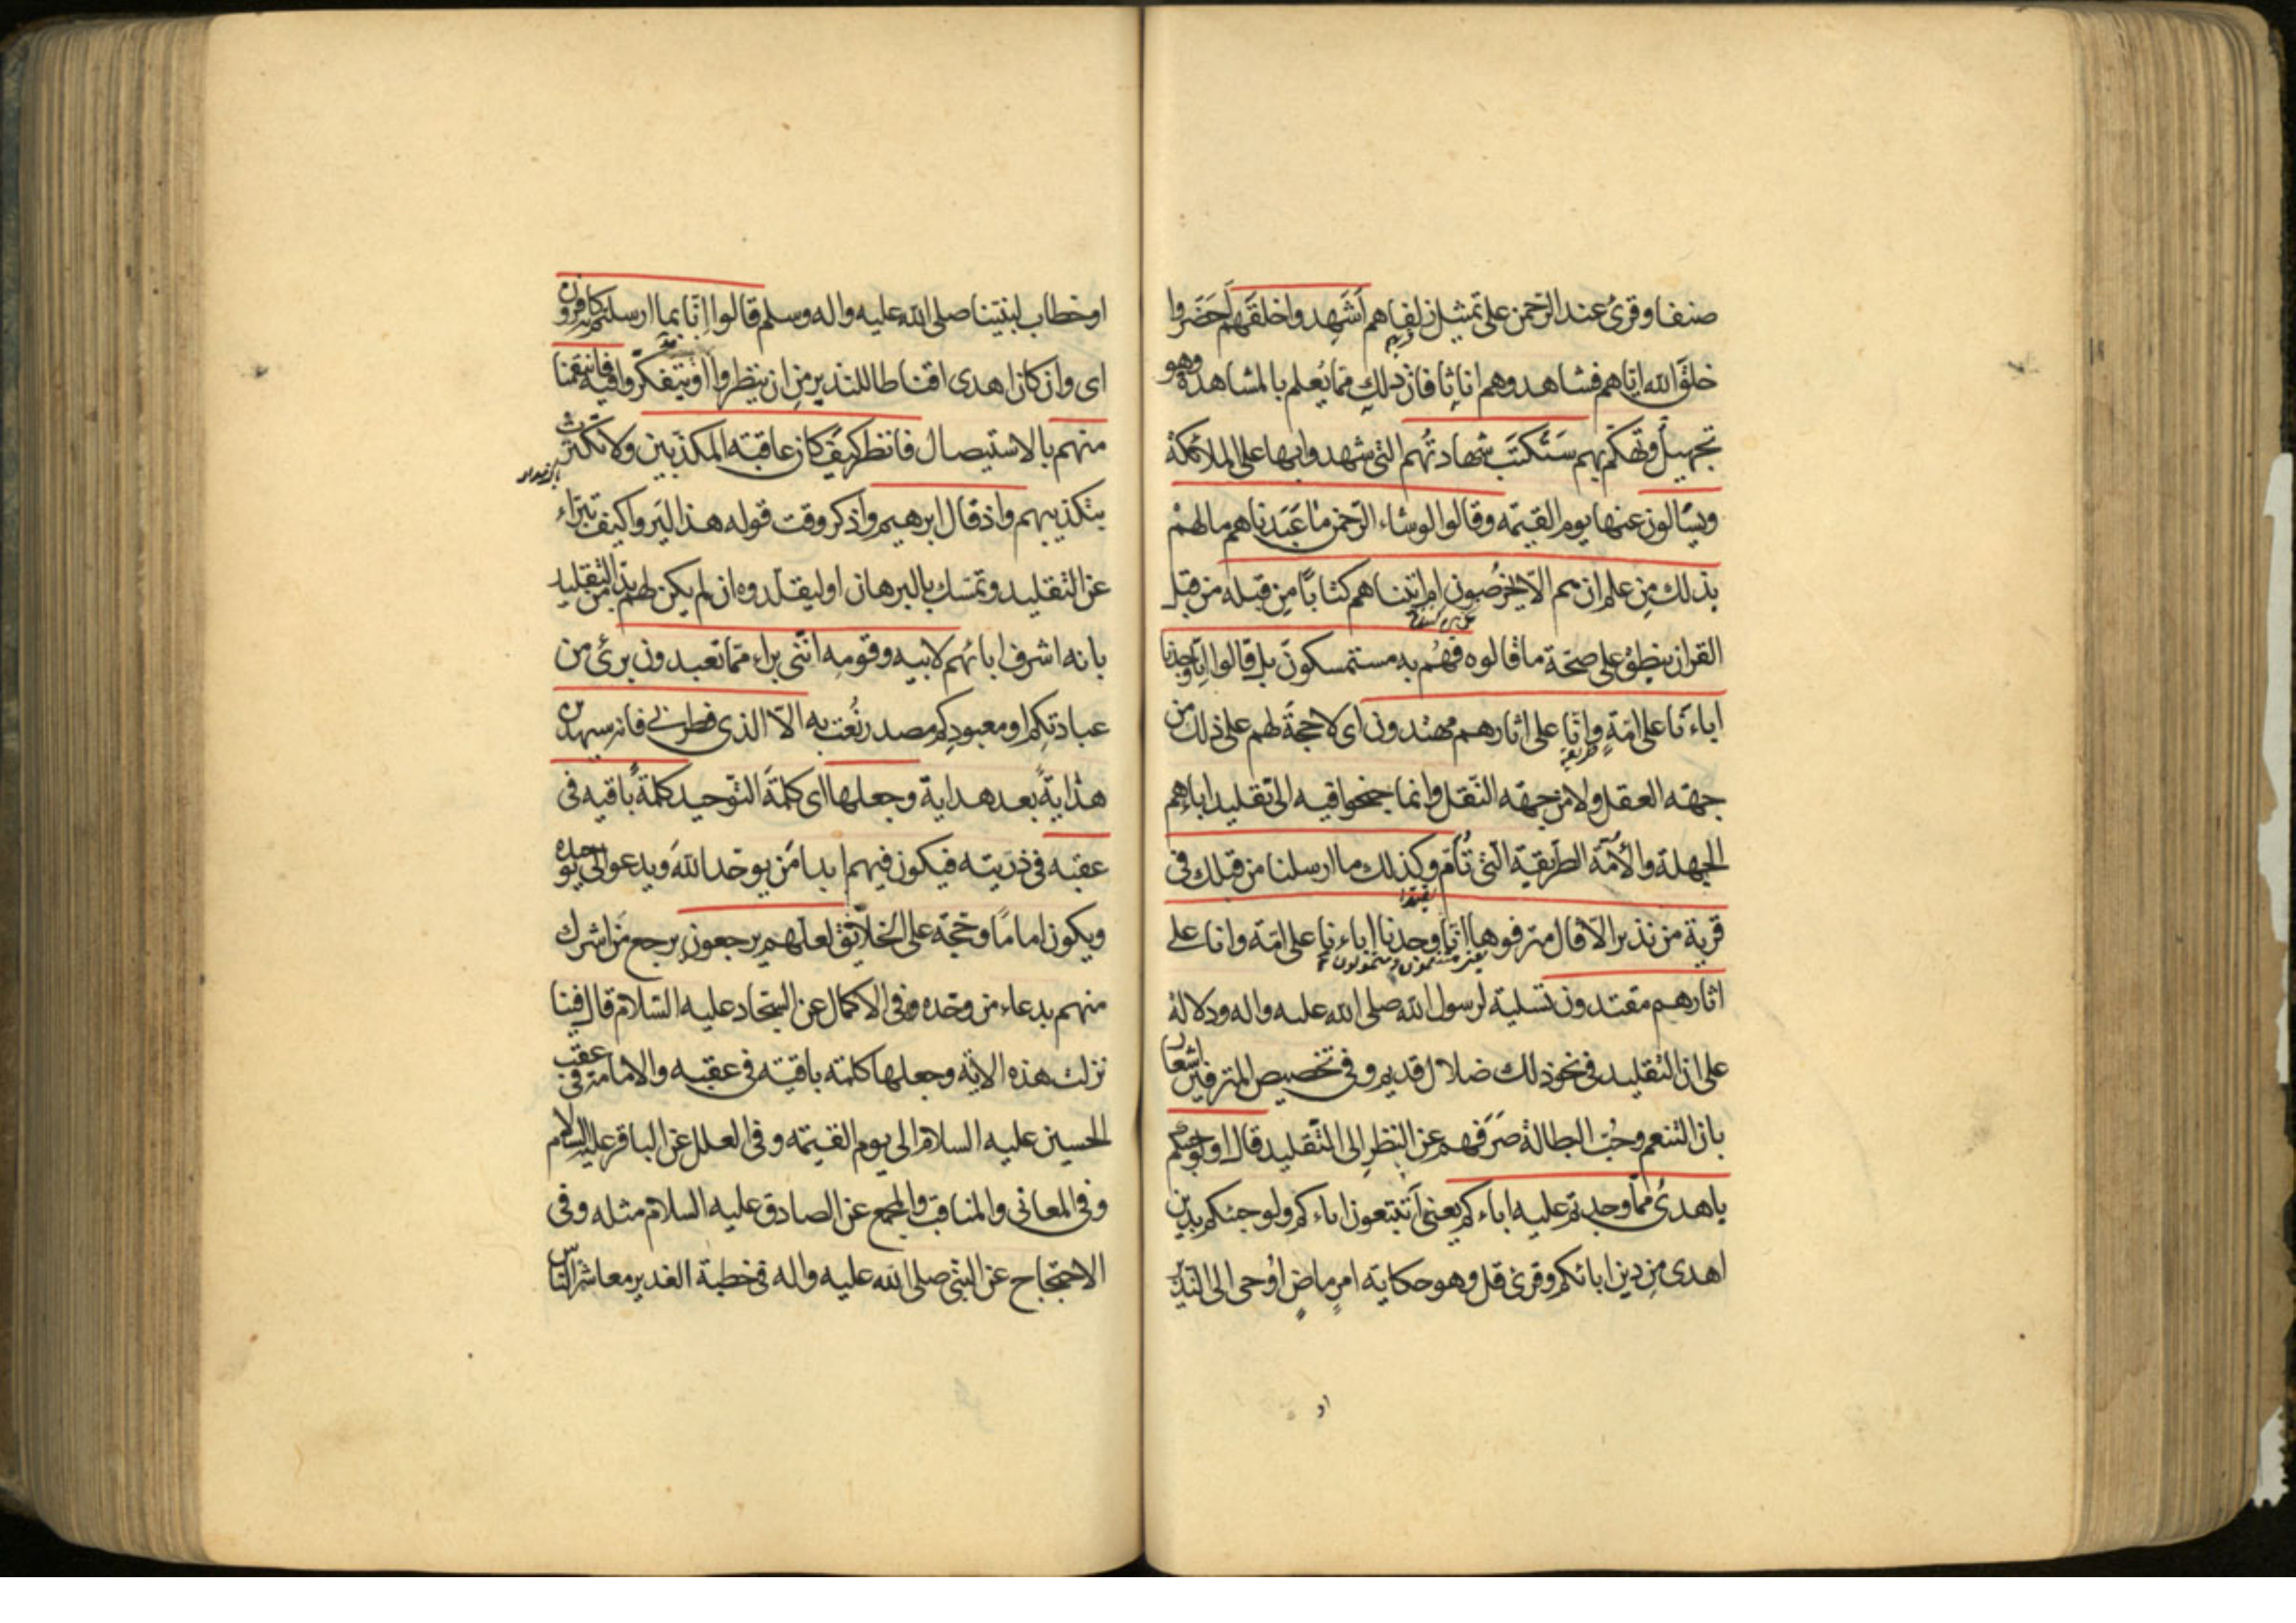 صنفا وقرئ عند الرحمن على تمثيل زلفاهم أشَهِدوا خلقَهم أحَضَروا
خلقَ الله اياهم فشاهدوهم اناثا فان ذلك مما يُعلم بالمشاهدة وهو
تجهيلٌ وتهكّم بهم سَتُكتَب شهادتُهم التى شهدوا بها على الملائكة
ويسألون عنها يوم القيمة وقالوا لو شاء الرّحمن ما عَبَدناهم ما لهم
بذلك مِن علم ان هم الا يخرُصون ام اتيناهم كتابًا مِن قبله من قبل
القران ينطِقُ على صحّة ما قالوه فهُم به مستمسكون بل قالوا اِنّا وجدنا
اباءَنا على امّةٍ وانّا على اثارهم مهتدون اى لا حجةَ لهم على ذلك من
طريقة
جهة العقل ولا من جهة النّقل وانما جنحوا فيه الى تقليد اباءِهِم
الجهلة والأمّة الطّريقة الّتى تُأمّ وكذلك ما ارسلنا من قبلك فى
قرية من نذير الّا قال مترفوها انّا وجدنا اباءنا على امّة وانا على
اثارهم مقتدون تسلية لرسول الله صلى الله عليه واله ودلالة
على ان التقليد فى نحو ذلك ضلال قديم وفى تخصيص المترفين اشعار
بان التنعم وحُبّ البطالة صَرَفهم عن النظر الى التّقليد قال اولو جئتكم
باهدىٰ ممّا وجدتم عليه اباءكم يعنى أتتبعون اباءكم ولو جئتكم بدين
اهدى مِن دين ابائكم وقرئ قل وهو حكاية امرٍ ماضٍ اُوحى الى النذير
او
او خطاب لنبيّنا صلى الله عليه واله وسلم قالوا انّا بما ارسلتم به كافرون
اى وان كان اهدى اقناطا للنذير مِن ان ينظروا او يتفكّروا فيه فانتقمنا
منهم بالاستيصال فانظر كيف كان عاقبة المكذّبين ولا تكترث
بتكذيبهم واذ قال ابرهيم واذكر وقت قوله هذا ليَروا كيف تبرّاء
عن التقليد وتمسك بالبرهان او ليقلّدوه ان لم يكن لهم بدّ من التقليد
بانه اشرف ابائهم لابيه وقومِه انّنى براء ممّا تعبدون برئ من
عبادتِكم او معبودِكم مصدر نُعت به الّا الذى فطرنى فانه سيهدين
هدايةً بعد هداية وجعلها اى كلمةَ التّوحيد كلمةً باقية فى
عقبه فى ذريّته فيكون فيهم ابدا مَن يوحّد اللّهَ ويدعو الى توحيده
ويكون اماما وحجّة على الخلائق لعلّهم يرجعون يرجع مَن اشرك
منهم بدعاء من وحّده وفى الاكمال عن السّجاد عليه السّلام قال فينا
نزلت هذه الاية وجعلها كلمة باقية فى عقبه والامامة فى عقب
الحسين عليه السلام الى يوم القيمة وفى العلل عن الباقر عليه السلام
وفى المعانى والمناقب والمجمع عن الصادق عليه السلام مثله وفى
الاحتجاج عن النبّى صلى الله عليه واله فى خطبة الغدير معاشر النّاس